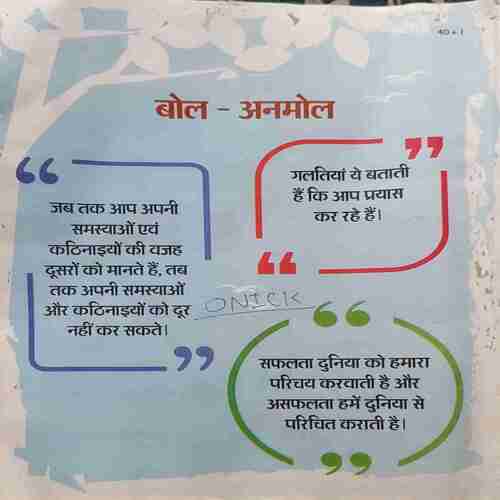 40 + 1
बोल - अनमोल
“
जब तक आप अपनी
समस्याओं एवं
कठिनाइयों की वजह
दूसरों को मानते हैं, तब
तक अपनी समस्याओं
और कठिनाइयों को दूर
नहीं कर सकते।
”
”
गलतियां ये बताती
हैं कि आप प्रयास
कर रहे हैं।
“
ONICK
“
सफलता दुनिया को हमारा
परिचय करवाती है और
असफलता हमें दुनिया से
परिचित कराती है।
”